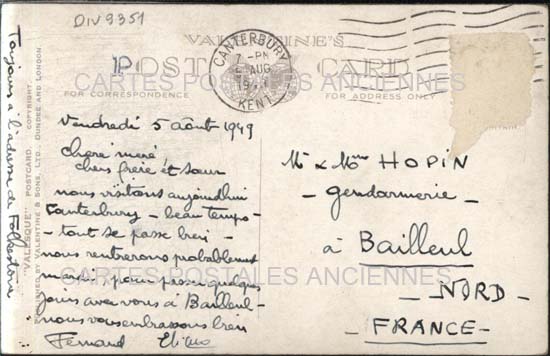 DIV9351
VALENTINE'S
POSTCARD
CARTES POSTALES ANCIENNES
FOR CORRESPONDENCE
FOR ADDRESS ONLY
CANTERBURY
7 - PM
AUG
19
KENT
Toujours à l'adresse de Folkestone
"VALESQUE" POSTCARD. COPYRIGHT
BY VALENTINE & SONS, LTD. DUNDEE AND LONDON
Vendredi 5 août 1949
chère mère
chers frère et sœur
nous visitons aujourdhui
Canterbury - beau temps -
- tout se passe bien -
nous rentrerons probablement
mardi, pour passer quelques
jours avec vous à Bailleul -
nous vous embrassons bien
Fernand
Mr & Mme HOPIN
- gendarmerie -
à Bailleul
CARTES POSTALES ANCIENNES
- NORD -
- FRANCE -